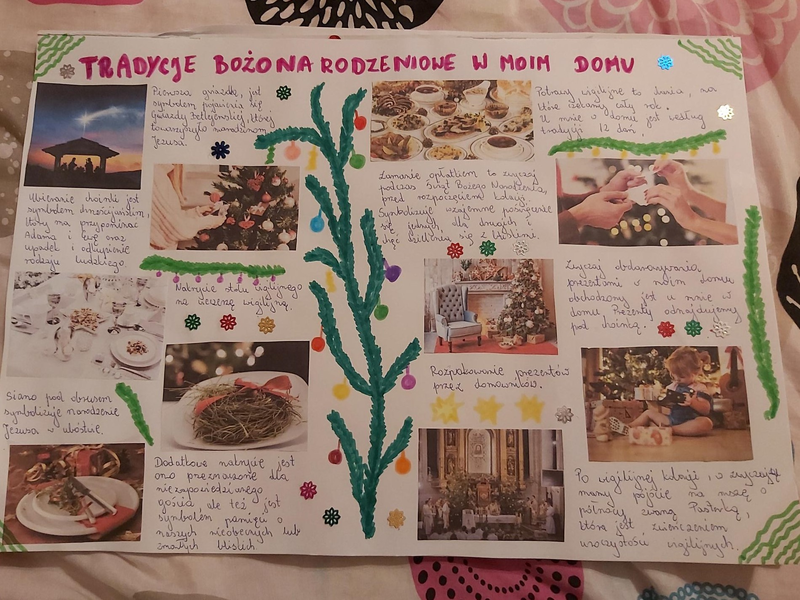 TRADYCJE BOŻONARODZENIOWE W MOIM DOMU
Pierwsza gwiazdka, jest
symbolem pojawienia się
Gwiazdy Betlejemskiej, który
towarzyszyło narodzinom
Jezusa.
Ubieranie choinki jest
symbolem chrześcijańskim,
który ma przypominać
Adama i Ewę oraz
upadek i odkupienie
rodzaju ludzkiego.
Nakrycie stołu wigilijnego
na wieczerzę wigilijną.
Siano pod obrusem
symbolizuje narodzenie
Jezusa w ubóstwie.
Dodatkowe nakrycie jest
ono przeznaczone dla
niezapowiedzianego
gościa, ale też jest
symbolem pamięci o
naszych nieobecnych lub
zmarłych bliskich.
Potrawy wigilijne to dania, na
które czekamy cały rok.
U mnie w domu jest według
tradycji 12 dań.
Łamanie opłatkiem to zwyczaj
podczas Świąt Bożego Narodzenia,
przed rozpoczęciem kolacji.
Symbolizuje wzajemne
się jednych, dla drugich i
chęć dzielenia się z bliskimi.
Zwyczaj obdarowywania
prezentami w moim domu
obchodzony jest u mnie w
domu. Prezenty odnajdujemy
pod choinką.
Rozpakowanie prezentów
przez domowników.
Po wigilijnej kolacji, w zwyczaju
mamy pójście na mszę o
północy zwaną Pasterką,
która jest zwieńczeniem
uroczystości wigilijnych.